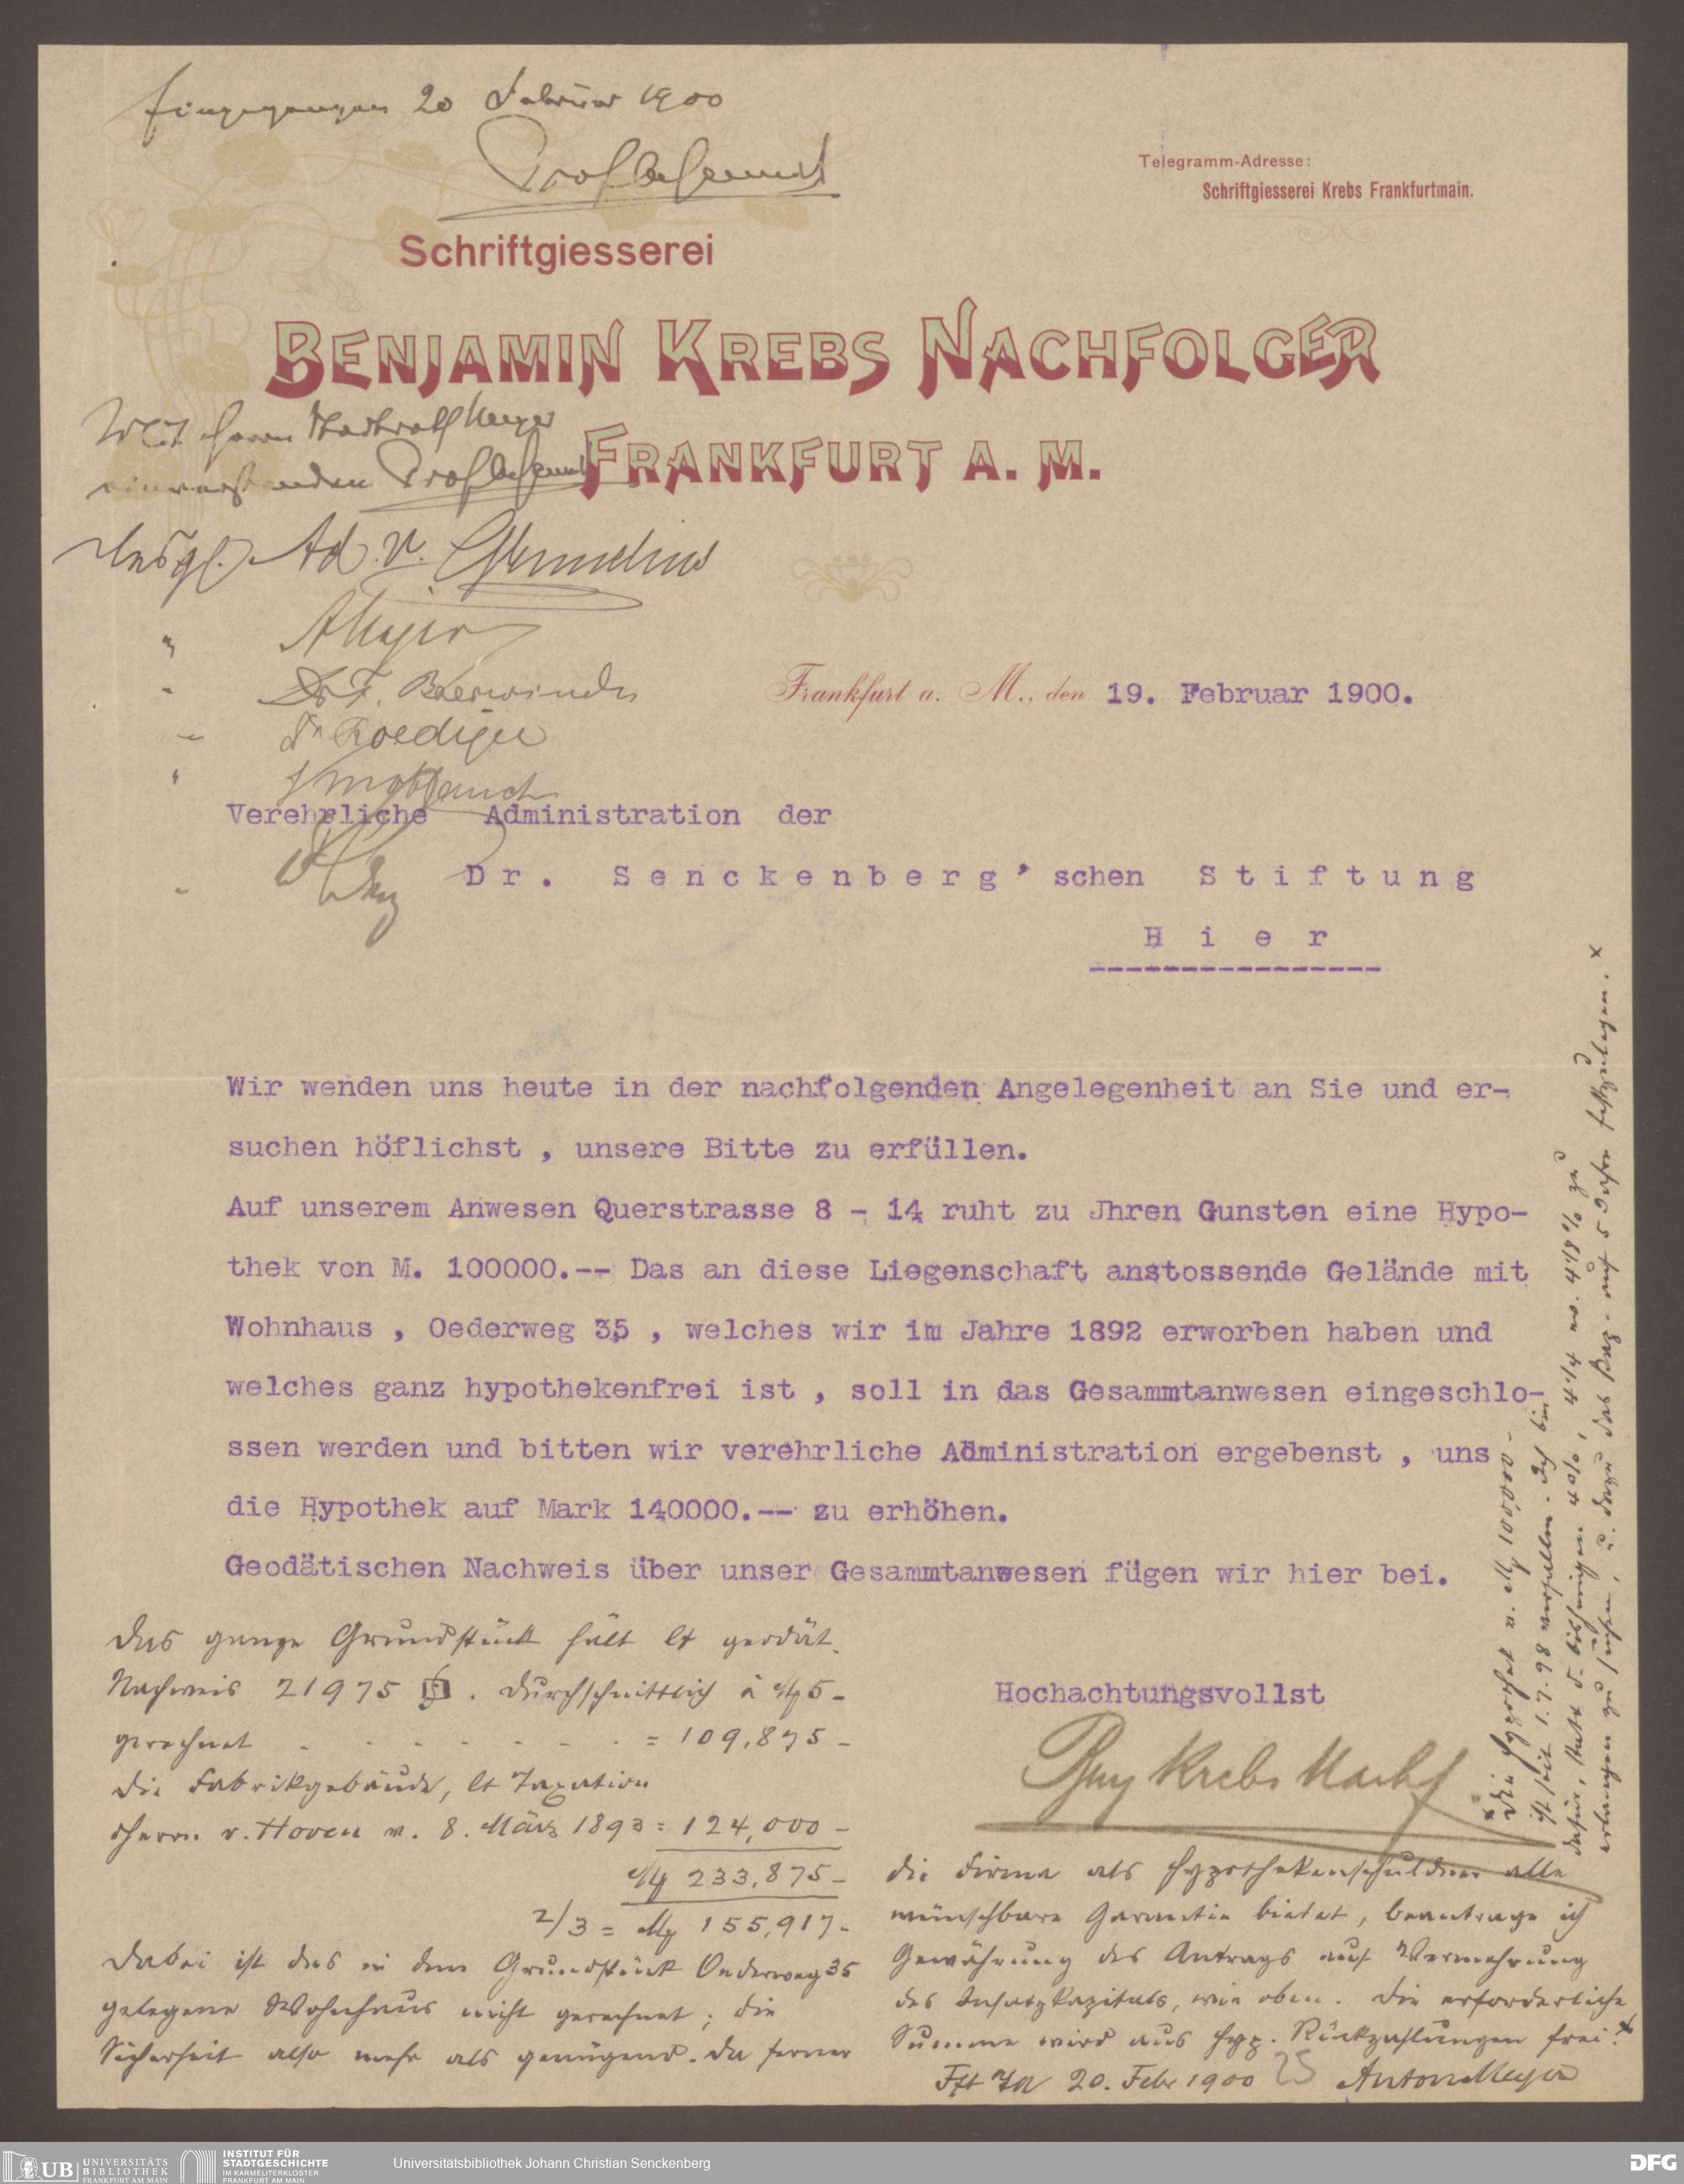 Eingegangen 20 Februar 1900
Telegramm-Adresse:
Schriftgiesserei Krebs Frankfurtmain.
Schriftgiesserei
BENJAMIN KREBS NACHFOLGER
FRANKFURT A. M.
Mit Herrn Stadtrath Meyer
einverstanden
desgl. Ad. v.
"
AMeyer
" Dr F.
" Dr Roediger
"
Frankfurt a. M., den 19. Februar 1900.
Verehrliche Administration der
Dr. Senckenberg'schen Stiftung
Hier
Wir wenden uns heute in der nachfolgenden Angelegenheit an Sie und er-
suchen höflichst , unsere Bitte zu erfüllen.
Auf unserem Anwesen Querstrasse 8 - 14 ruht zu Jhren Gunsten eine Hypo-
thek von M. 100000.-- Das an diese Liegenschaft anstossende Gelände mit
Wohnhaus , Oederweg 35 , welches wir im Jahre 1892 erworben haben und
welches ganz hypothekenfrei ist , soll in das Gesammtanwesen eingeschlo-
ssen werden und bitten wir verehrliche Administration ergebenst , uns
die Hypothek auf Mark 140000.-- zu erhöhen.
Geodätischen Nachweis über unser Gesammtanwesen fügen wir hier bei.
Hochachtungsvollst
Benj Krebs Nachf
Das ganze Grundstück hält lt geodät.
Nachweis 21975 . durchschnittlich à M 5 -
gerechnet - - - - - - - = 109,875 -
die Fabrikgebäude, lt Taxation
Herrn v. Hoven v. 8. März 1893 = 124,000 -
M 233,875 -
2/3 = M 155,917 -
Dabei ist das in dem Grundstück Oederweg 35
gelegene Wohnhaus nicht gerechnet; die
Sicherheit also mehr als genügend. Da ferner
die Firma als Hypothekenschuldner alle
wünschbare Garantie bietet, beantrage ich
Gewährung des Antrags auf Vermehrung
des Insatzkapitals, wie oben. Die erforderliche
Summe wird aus Hyp. Rückzahlungen frei. x
Fft a/M 20. Febr 1900 25 Anton Meyer
x Die Hypothek v. M 100,000 -
ist seit 1.7.98 verfallen. Ich bin
dafür, statt d. bisherigen 4%, 4 1/4 ev. 4 1/8 % zu
erlangen zu suchen, u. dazu das Kap. auf 5 Jahre festzulegen. x
UB UNIVERSITÄTS
BIBLIOTHEK
FRANKFURT AM MAIN
INSTITUT FÜR
STADTGESCHICHTE
IM KARMELITERKLOSTER
FRANKFURT AM MAIN
Universitätsbibliothek Johann Christian Senckenberg
DFG